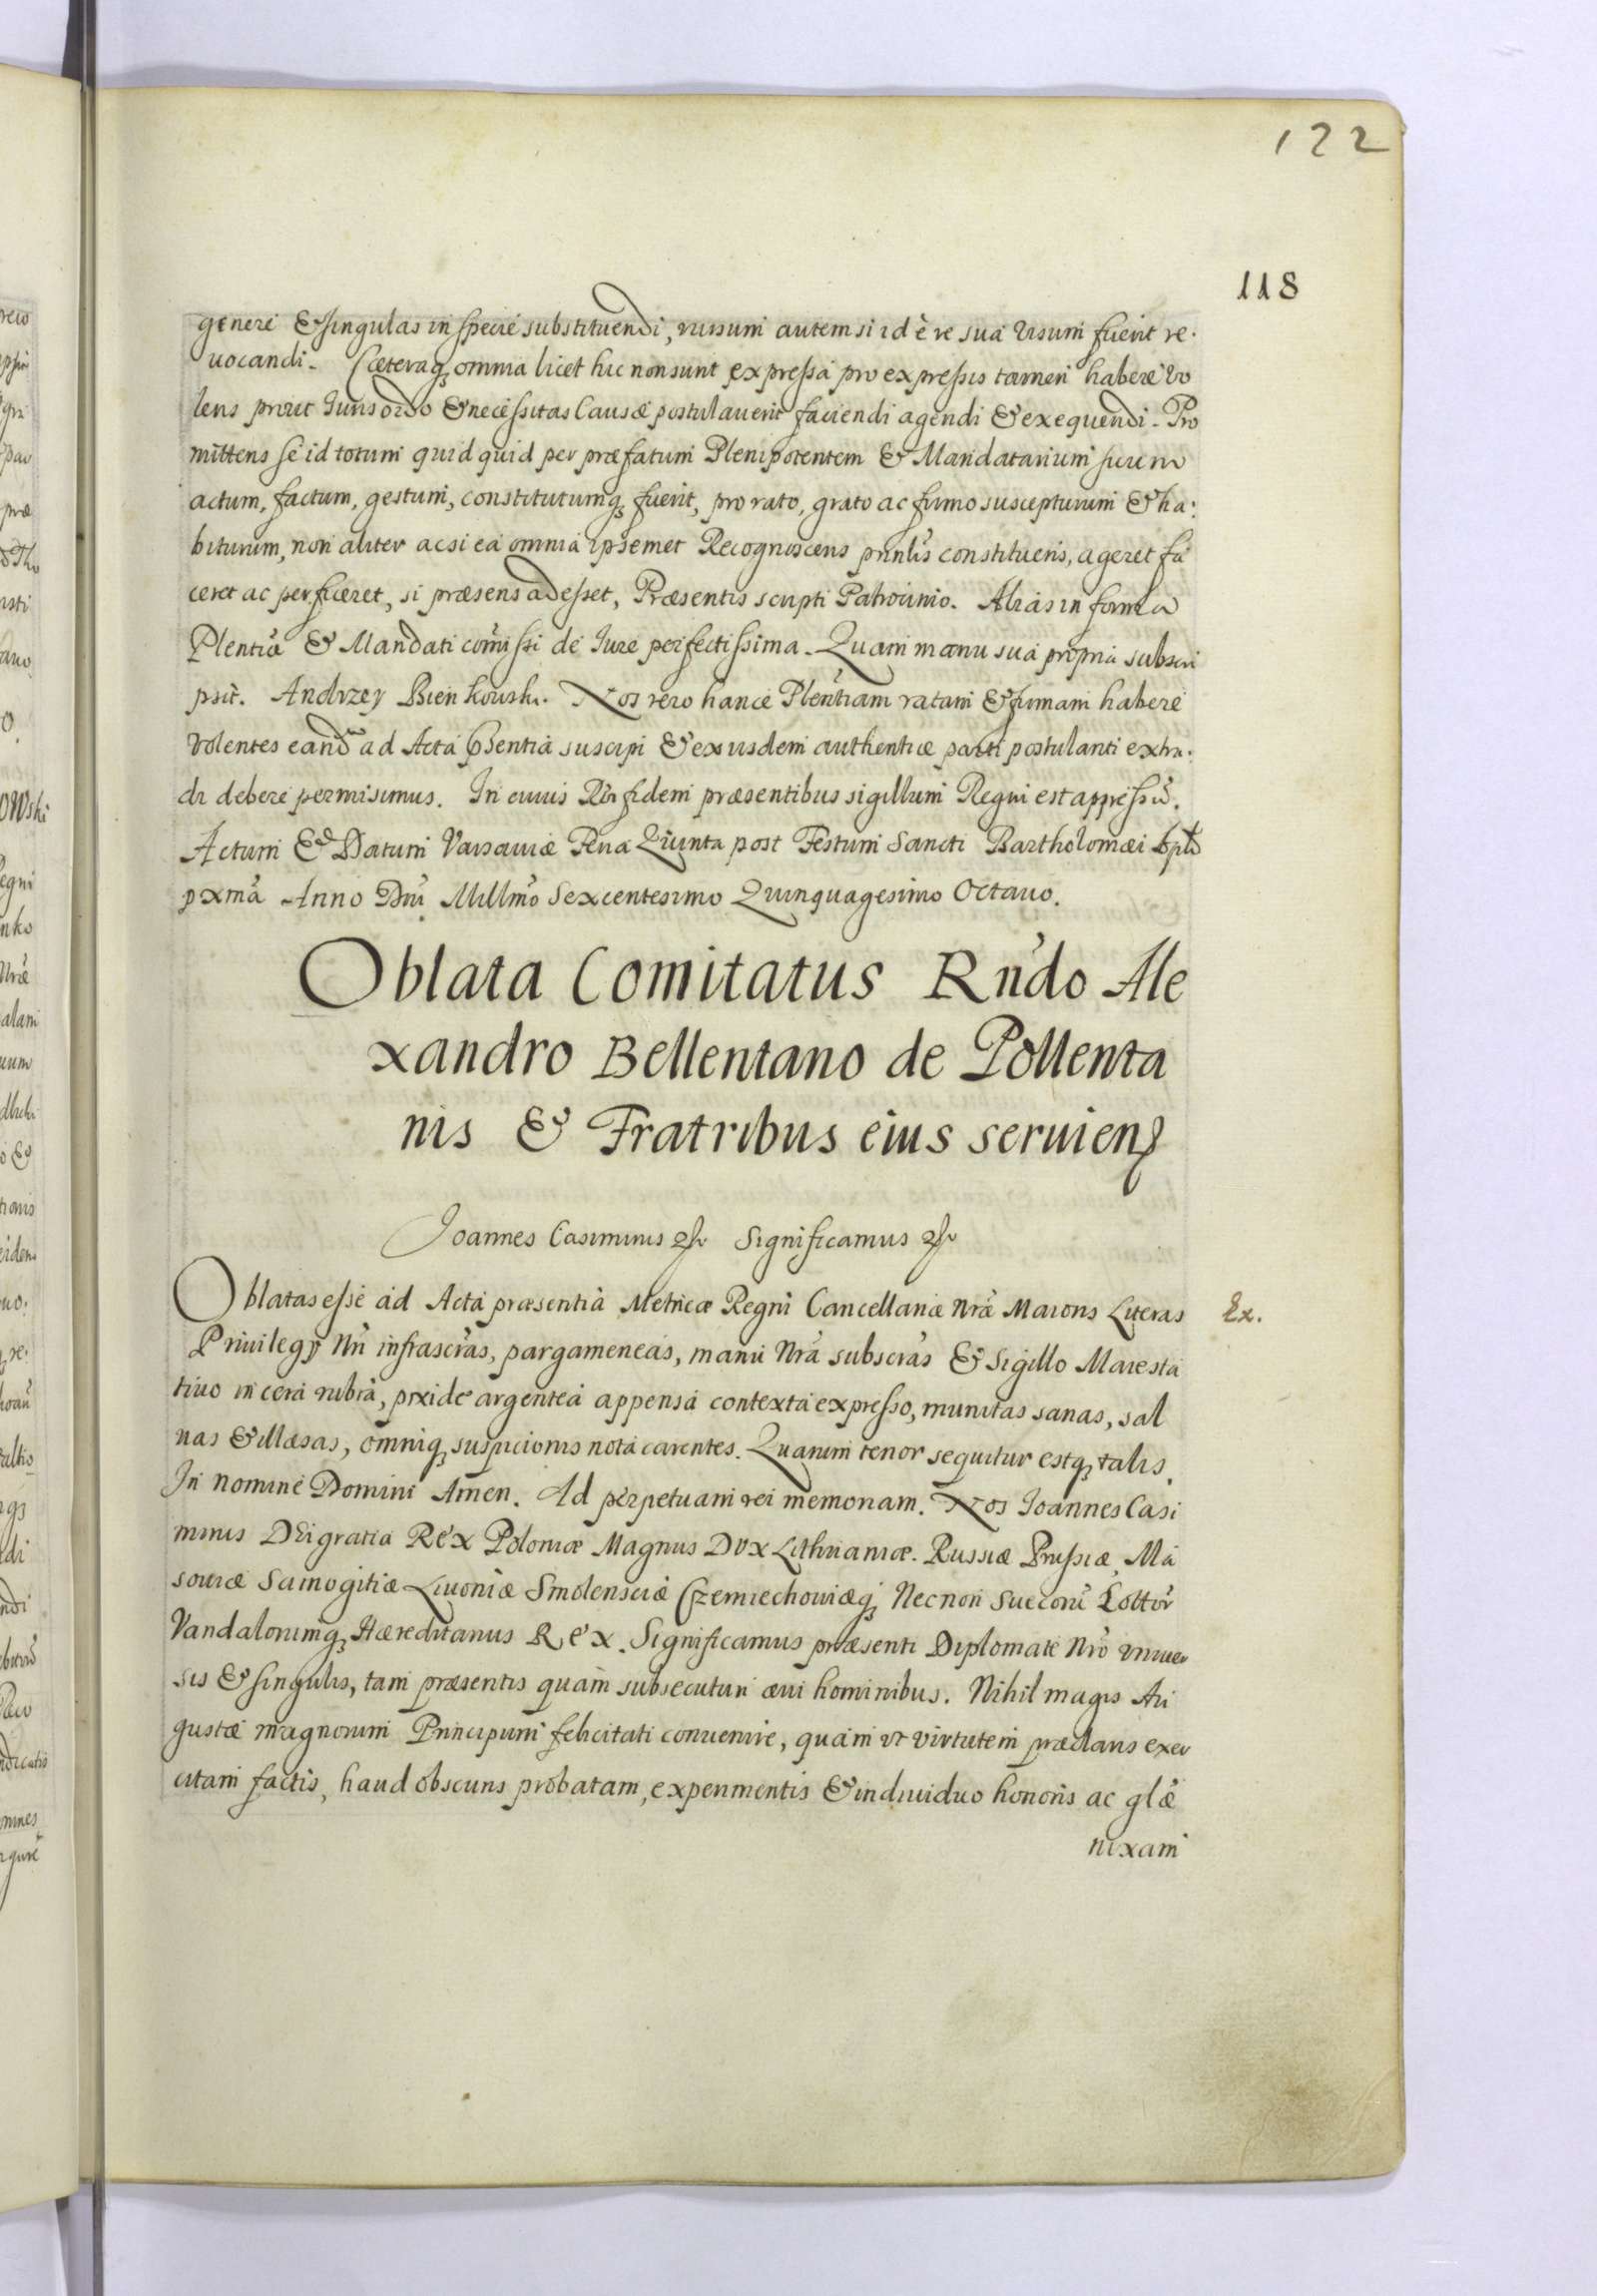 122
118
genere & singulas in specie substituendi, rursum autem si id è re sua visum fuerit re-
uocandi. Cæteraq; omnia licet hic non sunt expressa pro expressis tamen habere vo
lens prout Juris ordo & necessitas Causæ postulauerit faciendi agendi & exequendi. Pro
mittens se id totum quidquid per præfatum Plenipotentem & Mandatarium suum
actum, factum, gestum, constitutumq; fuerit, pro rato, grato ac firmo suscepturum & ha:
biturum, non aliter ac si ea omnia ipsemet Recognoscens prñlis constituens, ageret fa
ceret ac perficeret, si præsens adesset, Præsentis scripti Patrocinio. Alias in forma
Plentiæ & Mandati com̃issi de Jure perfectissima. Quam manu sua propria subscri
psit. Andrzey Bienkowski. Nos vero hance Pleñtiam ratam & firmam habere
volentes eand̃ ad Acta p̃sentia suscipi & exiisdem authentice parti postulanti extra:
di debere permisimus. In cuius Rei fidem præsentibus sigillum Regni est appressũ.
Actum & Datum Varsauiæ Feria Quinta post Festum Sancti Bartholomæi Apli
pxmã Anno Dñi Millm̃o Sexcentesimo Quinquagesimo Octauo.
Oblata Comitatus Rñdo Ale
xandro Bellentano de Pollenta
nis & Fratribus eius seruien
Joannes Casimirus Significamus
Oblatas esse ad Acta præsentia Metricæ Regni Cancellariæ nr̃æ Maioris Literas
Ex.
Priuilegy Nr̃i infrascr̃as, pargameneas, manu Nr̃a subscr̃as & Sigillo Maiesta
tiuo in cera rubra, pixide argentea appensa contexta expresso, munitas sanas, sal
uas & illæsas, omniq; suspicionis nota carentes. Quarum tenor sequitur estq; talis.
In nomine Domini Amen. Ad perpetuam rei memoriam. Nos Joannes Casi
mirus DEi gratia Rex Poloniæ Magnus Dux Lithuaniæ. Russiæ Prussiæ, Ma
souiæ Samogitiæ Liuoniæ Smolensciæ Czerniechouiæq; Necnon Suecorũ Gottor̃
Vandalorumq; Hæreditarius Rex. Significamus præsenti Diplomate Nr̃o vniuer
sis & singulis, tam præsentis quam subsecuturi æui hominibus. Nihil magis Au
gustæ magnorum Principum felicitati conuenire, quam vt virtutem præclaris exer
citam factis, haud obscuris probatam, experimentis & indiuiduo honoris ac glæ
nixam